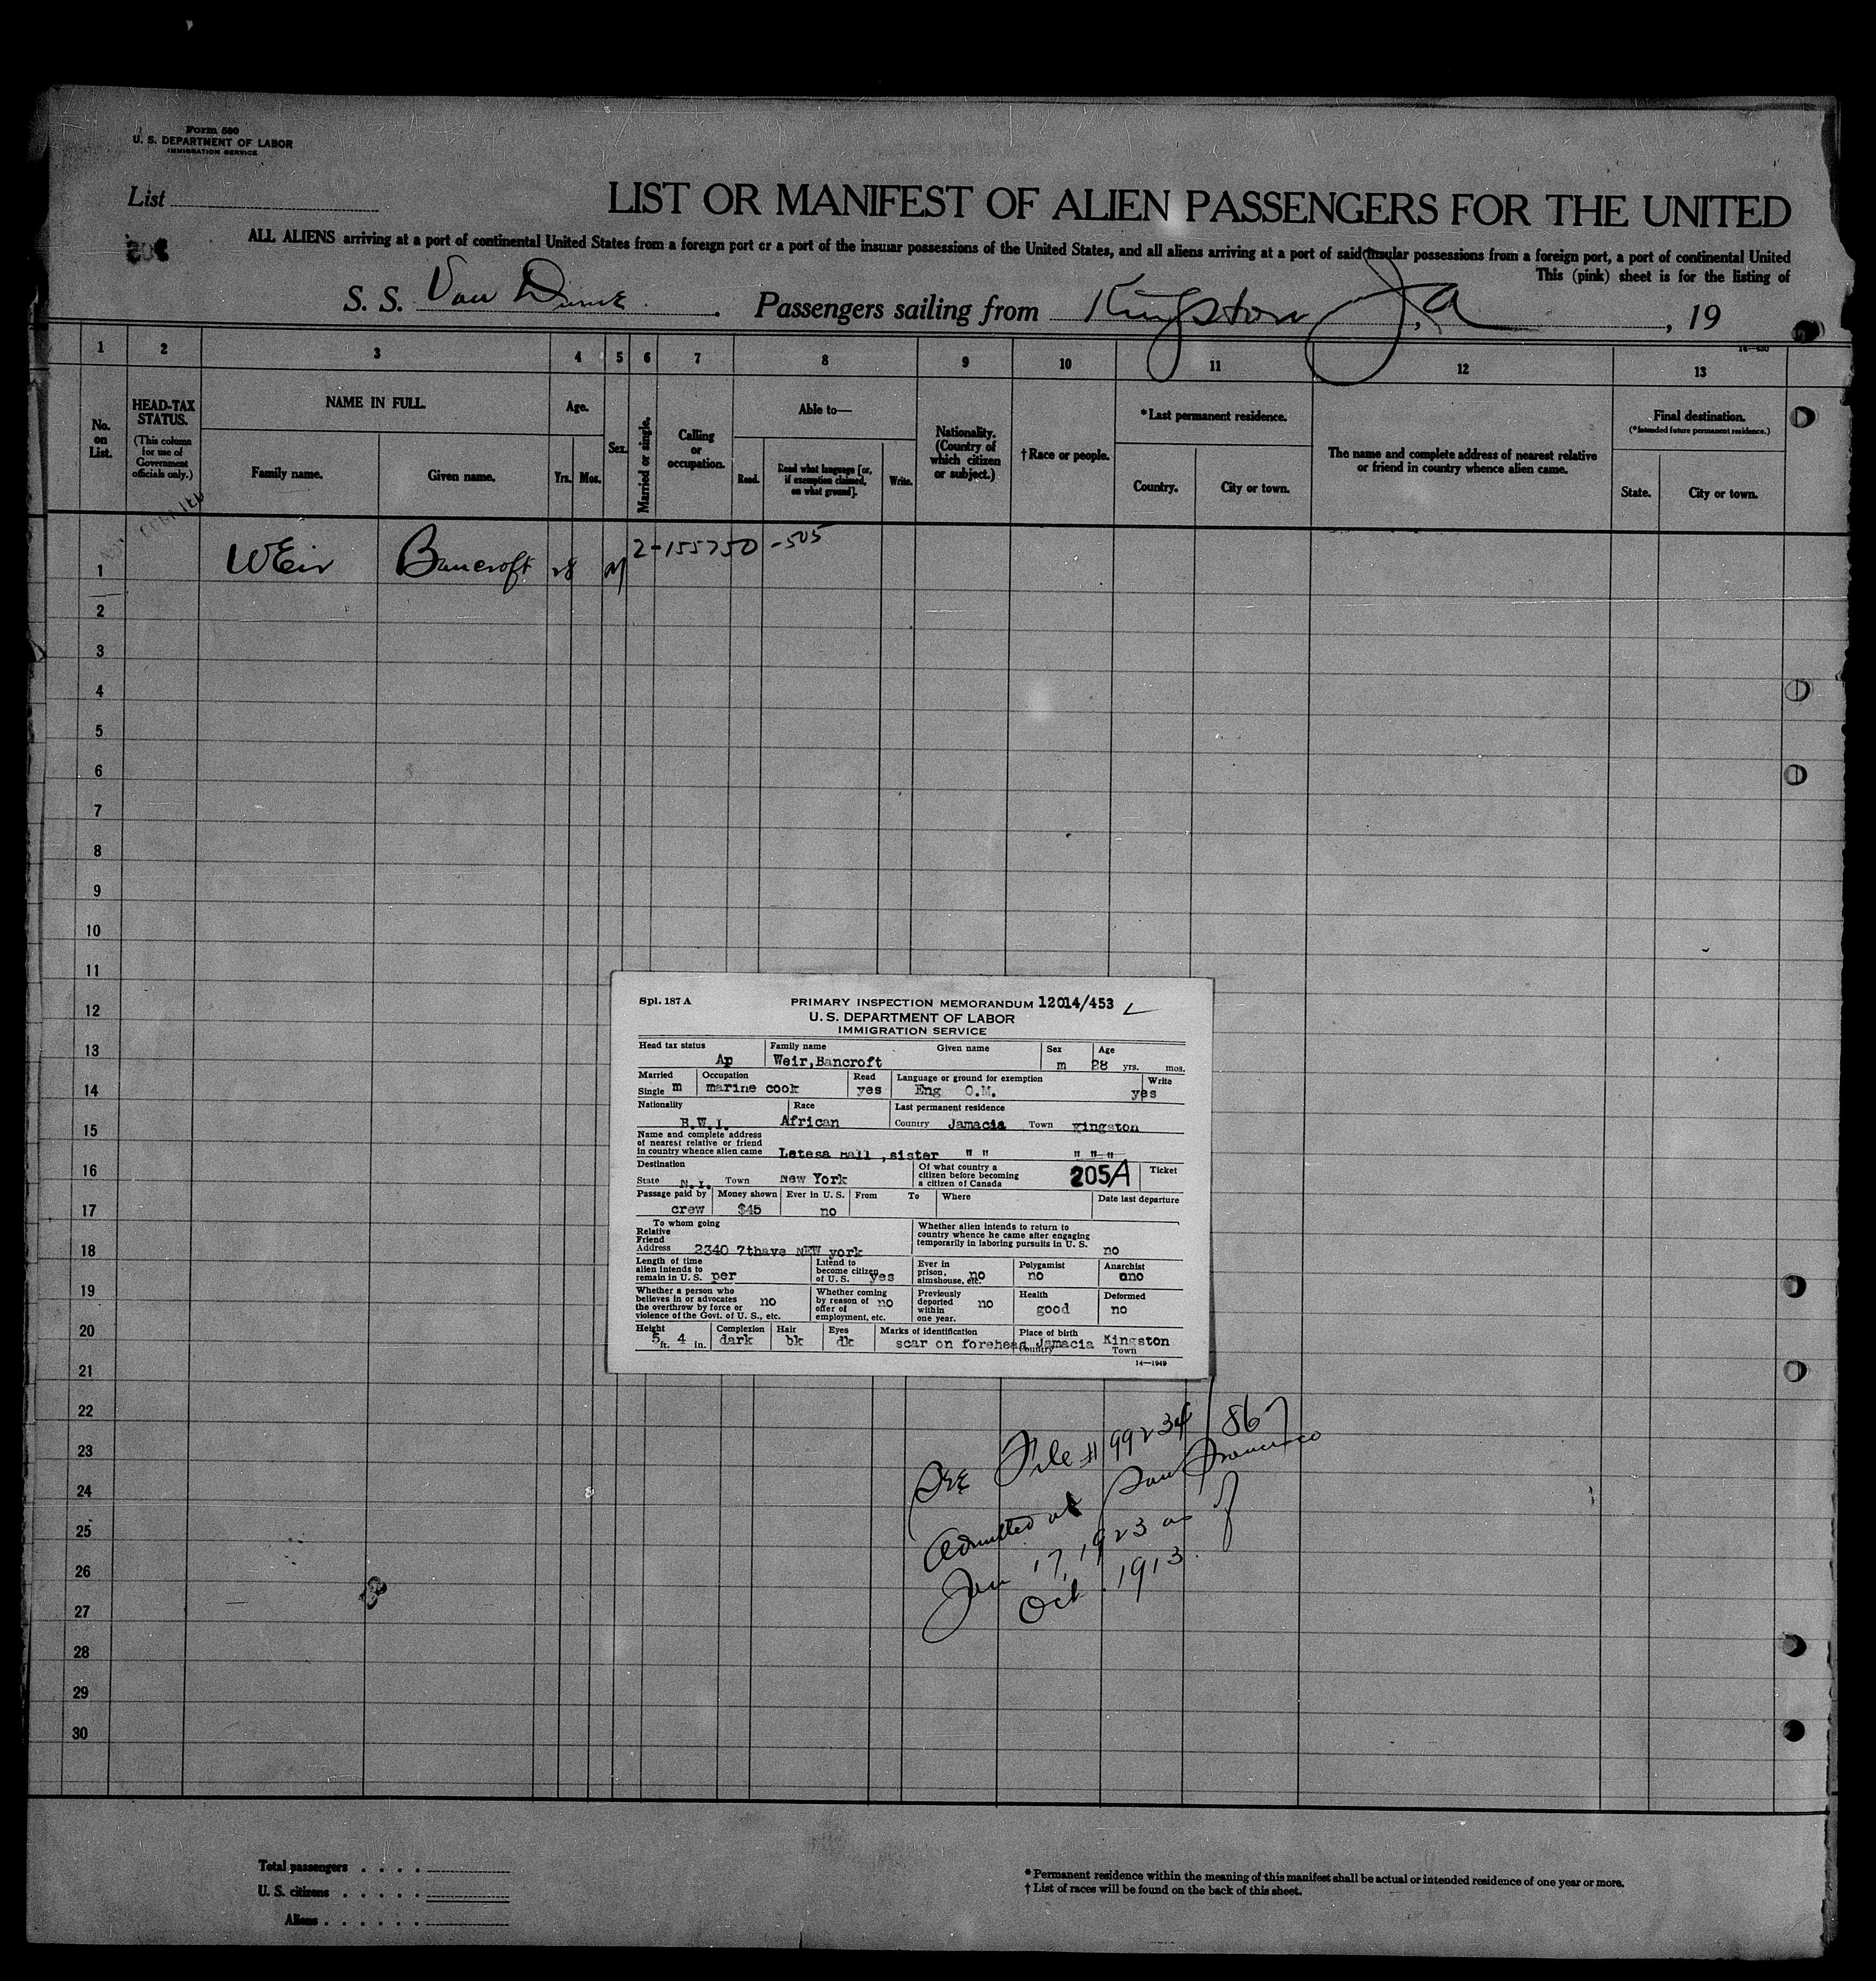 Form 500
U. S. DEPARTMENT OF LABOR
IMMIGRATION SERVICE
List
LIST OR MANIFEST OF ALIEN PASSENGERS FOR THE UNITED
ALL ALIENS arriving at a port of continental United States from a foreign port or a port of the insular possessions of the United States, and all aliens arriving at a port of said insular possessions from a foreign port, a port of continental United
This (pink) sheet is for the listing of
S. S. Van Dume . Passengers sailing from Kingston Ja , 19
1 2 3 4 5 6 7 8 9 10 11 12 13
No. on List.
HEAD-TAX STATUS.
(This column for use of Government officials only.)
NAME IN FULL.
Family name. Given name.
Age.
Yrs. Mos.
Sex.
Married or single.
Calling or occupation.
Able to—
Read. Read what language [or, if exemption claimed, on what ground]. Write.
Nationality. (Country of which citizen or subject.)
†Race or people.
*Last permanent residence.
Country. City or town.
The name and complete address of nearest relative or friend in country whence alien came.
Final destination.
(*Intended future permanent residence.)
State. City or town.
1 Weir Bancroft 28 M 2-155750-505
2
3
4
5
6
7
8
9
10
11
12
13
14
15
16
17
18
19
20
21
22
23
24
25
26
27
28
29
30
Spl. 187 A PRIMARY INSPECTION MEMORANDUM 12014/453
U. S. DEPARTMENT OF LABOR
IMMIGRATION SERVICE
Head tax status Family name Given name Sex Age
Ap Weir,Bancroft m 28 yrs. mos.
Married Occupation Read Language or ground for exemption Write
Single m marine cook yes Eng O.M. yes
Nationality Race Last permanent residence
B.W.I. African Country Jamacia Town Kingston
Name and complete address
of nearest relative or friend
in country whence alien came Letesa Hall ,sister " " " " "
Destination Of what country a citizen before becoming a citizen of Canada 205A Ticket
State N.Y. Town New York
Passage paid by Money shown Ever in U. S. From To Where Date last departure
crew $45 no
To whom going
Relative
Friend
Address 2340 7thave NEW york
Whether alien intends to return to
country whence he came after engaging
temporarily in laboring pursuits in U. S. no
Length of time alien intends to remain in U. S. per
Intend to become citizen of U. S. yes
Ever in prison, almshouse, etc. no
Polygamist no
Anarchist ono
Whether a person who believes in or advocates the overthrow by force or violence of the Govt. of U. S., etc. no
Whether coming by reason of offer of employment, etc. no
Previously deported within one year. no
Health good
Deformed no
Height Complexion Hair Eyes Marks of identification Place of birth
5 ft. 4 in. dark bk dk scar on forehead Jamacia Kingston
Country Town
14—1949
See File # 99234/867
Admitted at San Francisco
Jan 17, 1923 as of
Oct. 1913.
Total passengers . . . .
U. S. citizens . . . . .
Aliens . . . . . .
* Permanent residence within the meaning of this manifest shall be actual or intended residence of one year or more.
† List of races will be found on the back of this sheet.